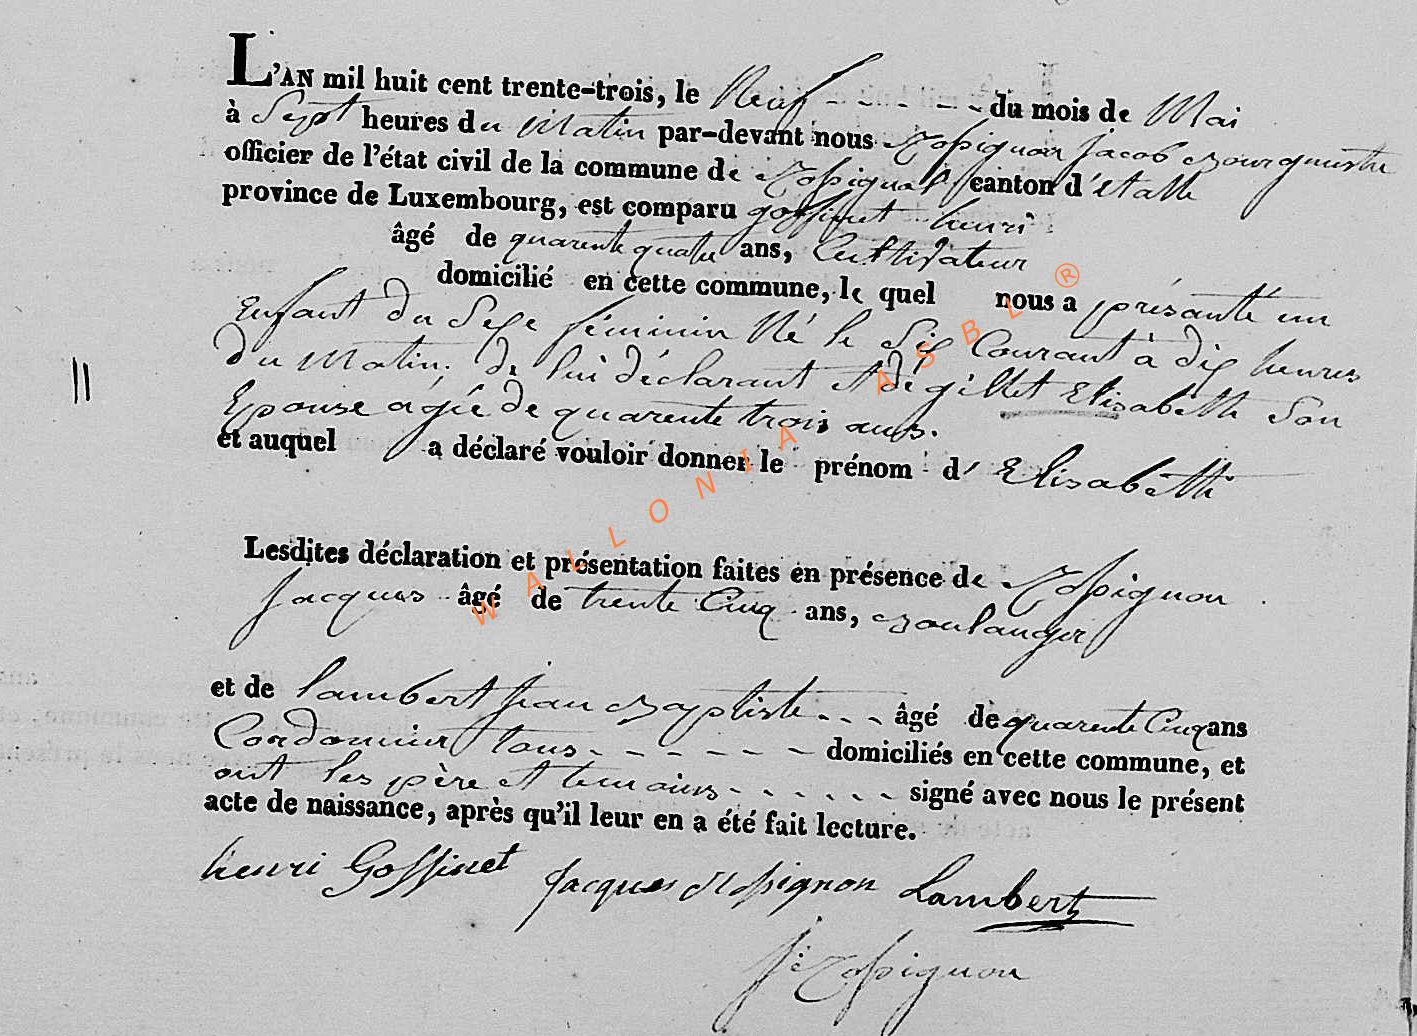 L'AN mil huit cent trente-trois, le Neuf - - - - - - du mois de Mai
à Sept heures du Matin par-devant nous Rossignon Jacob Bourguestre
officier de l'état civil de la commune de Rossignol canton d'étalle
province de Luxembourg, est comparu gossinet henri
âgé de quarente quatre ans, Cultivateur
domicilié en cette commune, le quel nous a présanté un
Enfant du Sexe féminin Né le Six Courant à dix heures
du Matin, de lui déclarant et dé gillet Elisabethe Son
Epouse agée de quarente trois ans.
et auquel a déclaré vouloir donner le prénom d' Elisabethe
Lesdites déclaration et présentation faites en présence de Rossignon
Jacques âgé de trente Cinq ans, Boulanger
et de lambert jean Baptiste - - - âgé de quarente Cinq ans
Cordonnier tous - - - - - - domiciliés en cette commune, et
ont les père et temoins - - - - - - signé avec nous le présent
acte de naissance, après qu'il leur en a été fait lecture.
henri Gossinet Jacques Rossignon Lambert
Rossignon
WALLONIA ASBL ®